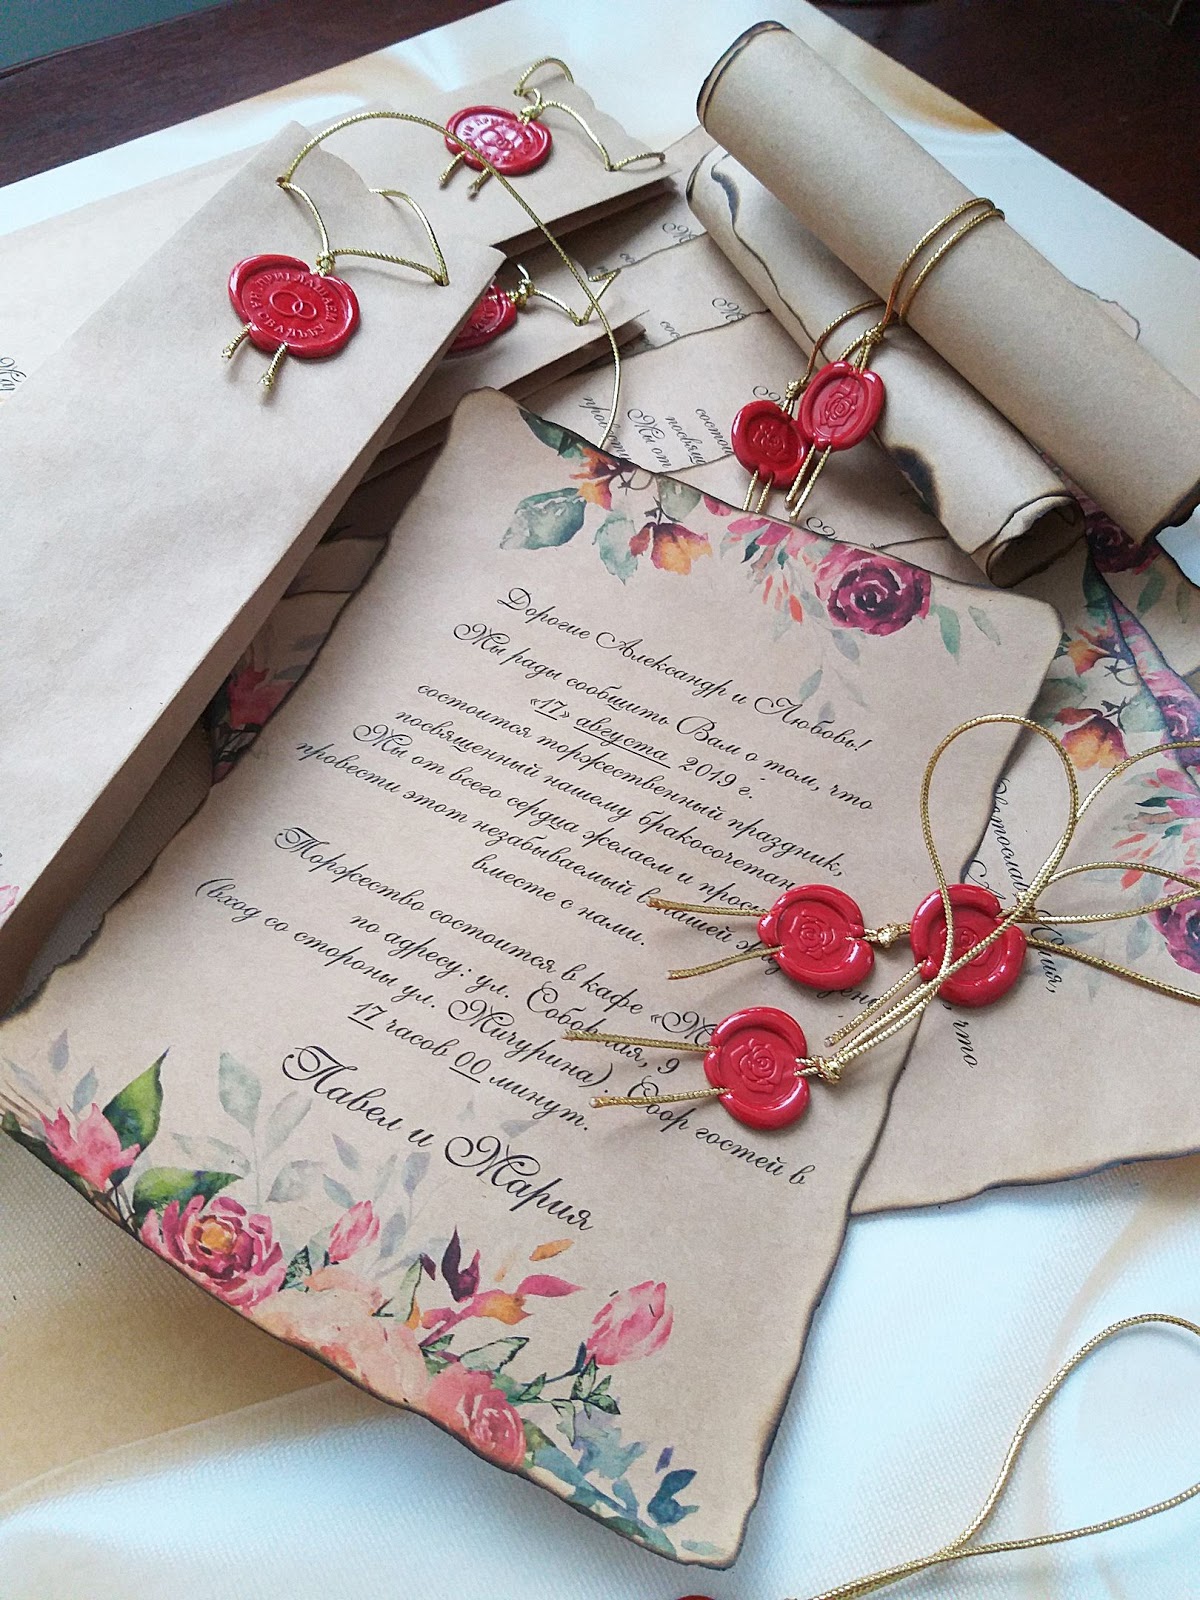 Дорогие Александр и Любовь!
Мы рады сообщить Вам о том, что
«17» августа 2019 г.
состоится торжественный праздник,
посвященный нашему бракосочетан
Мы от всего сердца желаем и прос
провести этот незабываемый в нашей
вместе с нами.
Торжество состоится в кафе «М
по адресу: ул. Соборная, 9
(вход со стороны ул. Мичурина). Сбор гостей в
17 часов 00 минут.
Павел и Мария
ПРИГЛАШАЕМ
НА СВАДЬБУ
что